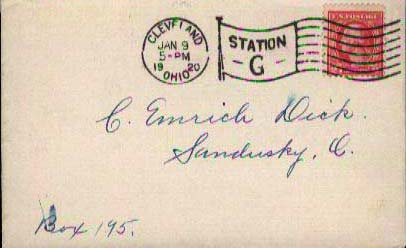 CLEVELAND
JAN 9
5-PM
1920
OHIO
STATION
- G -
U.S. POSTAGE
C. Emrich Dick.
Sandusky, O.
Box 195.